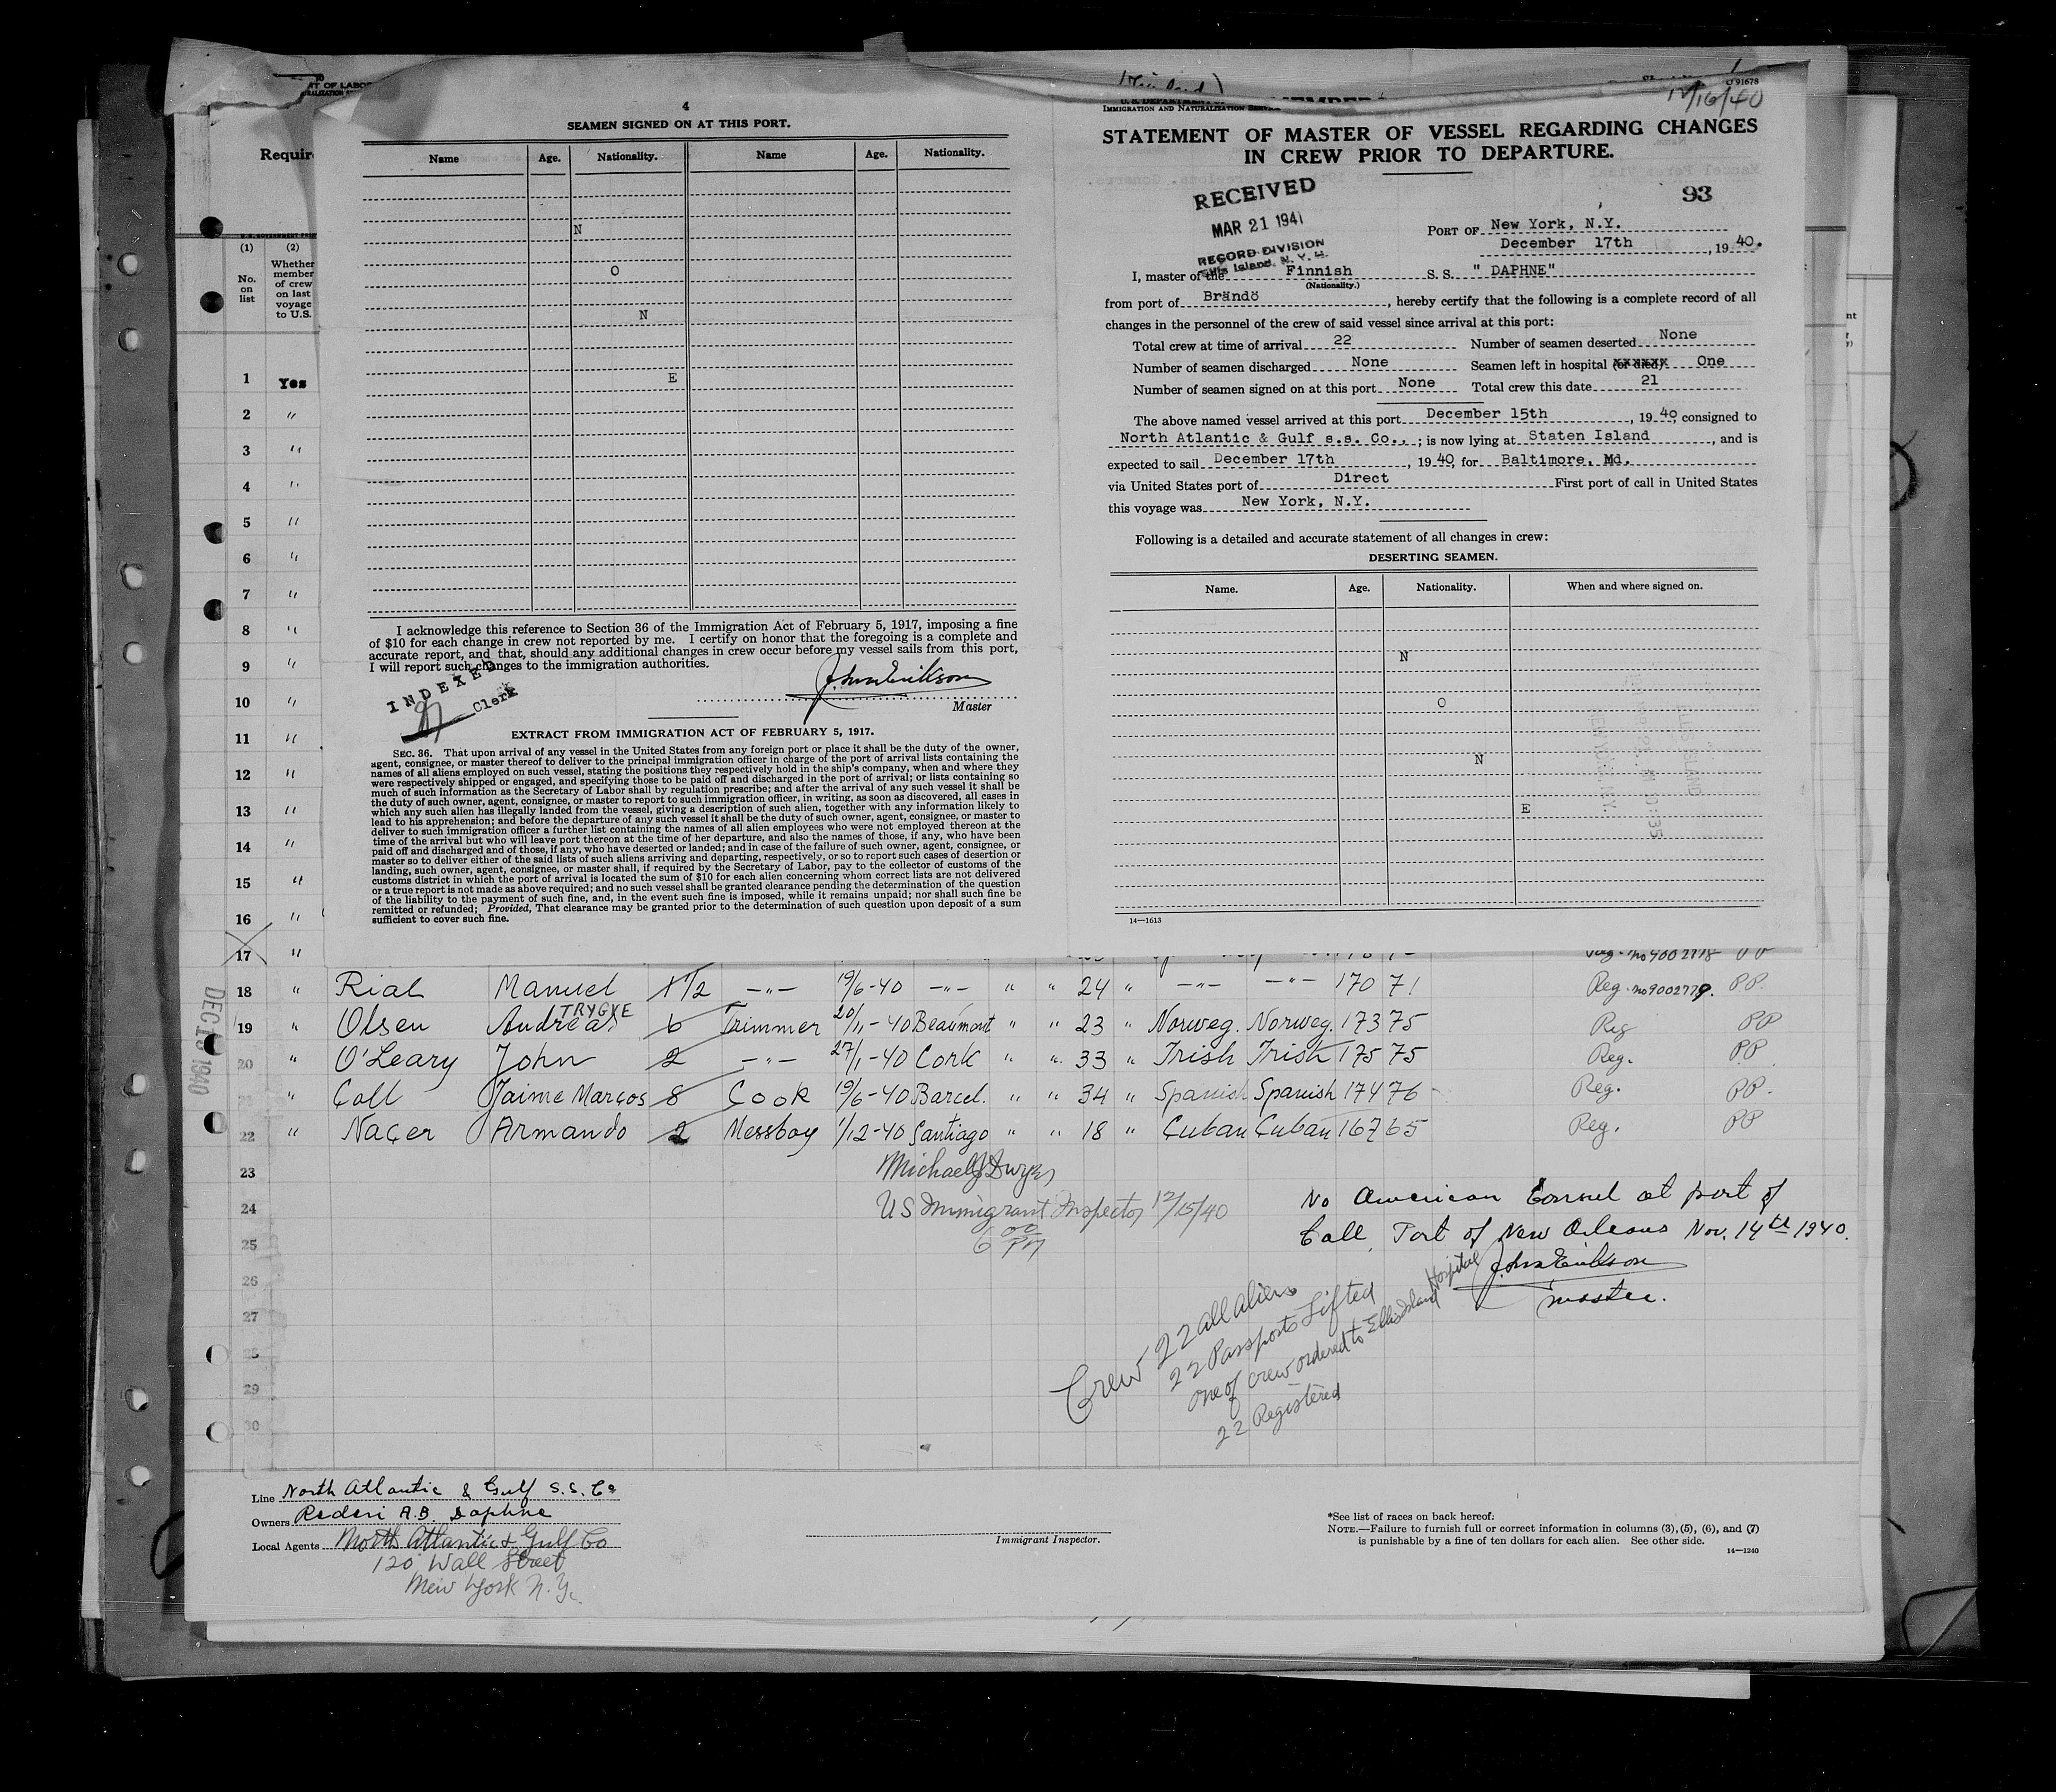 4
SEAMEN SIGNED ON AT THIS PORT.
Name Age. Nationality. Name Age. Nationality.
N
O
N
E
I acknowledge this reference to Section 36 of the Immigration Act of February 5, 1917, imposing a fine
of $10 for each change in crew not reported by me. I certify on honor that the foregoing is a complete and
accurate report, and that, should any additional changes in crew occur before my vessel sails from this port,
I will report such changes to the immigration authorities.
INDEXED
Clerk
John Erikson
Master
EXTRACT FROM IMMIGRATION ACT OF FEBRUARY 5, 1917.
SEC. 36. That upon arrival of any vessel in the United States from any foreign port or place it shall be the duty of the owner,
agent, consignee, or master thereof to deliver to the principal immigration officer in charge of the port of arrival lists containing the
names of all aliens employed on such vessel, stating the positions they respectively hold in the ship's company, when and where they
were respectively shipped or engaged, and specifying those to be paid off and discharged in the port of arrival; or lists containing so
much of such information as the Secretary of Labor shall by regulation prescribe; and after the arrival of any such vessel it shall be
the duty of such owner, agent, consignee, or master to report to such immigration officer, in writing, as soon as discovered, all cases in
which any such alien has illegally landed from the vessel, giving a description of such alien, together with any information likely to
lead to his apprehension; and before the departure of any such vessel it shall be the duty of such owner, agent, consignee, or master to
deliver to such immigration officer a further list containing the names of all alien employees who were not employed thereon at the
time of the arrival but who will leave port thereon at the time of her departure, and also the names of those, if any, who have been
paid off and discharged and of those, if any, who have deserted or landed; and in case of the failure of such owner, agent, consignee, or
master so to deliver either of the said lists of such aliens arriving and departing, respectively, or so to report such cases of desertion or
landing, such owner, agent, consignee, or master shall, if required by the Secretary of Labor, pay to the collector of customs of the
customs district in which the port of arrival is located the sum of $10 for each alien concerning whom correct lists are not delivered
or a true report is not made as above required; and no such vessel shall be granted clearance pending the determination of the question
of the liability to the payment of such fine, and, in the event such fine is imposed, while it remains unpaid; nor shall such fine be
remitted or refunded; Provided, That clearance may be granted prior to the determination of such question upon deposit of a sum
sufficient to cover such fine.
91678
12/16/40
IMMIGRATION AND NATURALIZATION SERVICE
STATEMENT OF MASTER OF VESSEL REGARDING CHANGES
IN CREW PRIOR TO DEPARTURE.
RECEIVED
MAR 21 1941
RECORD DIVISION
Ellis Island, N. Y. H.
93
PORT OF New York, N.Y.
December 17th, 1940.
I, master of the Finnish S. S. " DAPHNE"
(Nationality.)
from port of Brändö, hereby certify that the following is a complete record of all
changes in the personnel of the crew of said vessel since arrival at this port:
Total crew at time of arrival 22 Number of seamen deserted None
Number of seamen discharged None Seamen left in hospital (or died) One
Number of seamen signed on at this port None Total crew this date 21
The above named vessel arrived at this port December 15th, 1940, consigned to
North Atlantic & Gulf s.s. Co., ; is now lying at Staten Island, and is
expected to sail December 17th, 1940, for Baltimore, Md.
via United States port of Direct First port of call in United States
this voyage was New York, N.Y.
Following is a detailed and accurate statement of all changes in crew:
DESERTING SEAMEN.
Name. Age. Nationality. When and where signed on.
N
O
N
E
14—1613
(1) (2)
No. on list
Whether member of crew on last voyage to U.S.
1 Yes
2 "
3 "
4 "
5 "
6 "
7 "
8 "
9 "
10 "
11 "
12 "
13 "
14 "
15 "
16 "
17 "
18 " Rial Manuel 1/2 —"— 19/6-40 —"— " " 24 " —"— —"— 170 71 Reg. no9002779. PP.
19 " Olsen Andreas TRYGVE 6 Trimmer 20/11-40 Beaumont " " 23 " Norweg. Norweg. 173 75 Reg PP
20 " O'Leary John 2 —"— 27/1-40 Cork " " 33 " Irish Irish 175 75 Reg. PP
21 " Coll Jaime Marcos 8 Cook 19/6-40 Barcel. " " 34 " Spanish Spanish 174 76 Reg. PP.
22 " Nacer Armando 2 Messboy 1/12-40 Santiago " " 18 " Cuban Cuban 167 65 Reg. PP
23
24
25
26
27
28
29
30
Michael J Dwyer
US Immigrant Inspector 12/15/40
6 00 PM
No American Consul at port of
Call, Port of New Orleans Nov. 14th 1940.
John Erikson
master.
Crew 22 all aliens
22 Passports Lifted
one of crew ordered to Ellis Island Hospital
22 Registered
Line North Atlantic & Gulf S.S. Co
Owners Rederi A.B. Daphne
Local Agents North Atlantic & Gulf Co
120 Wall Street
New York N.Y.
Immigrant Inspector.
*See list of races on back hereof.
NOTE.—Failure to furnish full or correct information in columns (3), (5), (6), and (7)
is punishable by a fine of ten dollars for each alien. See other side.
14—1240